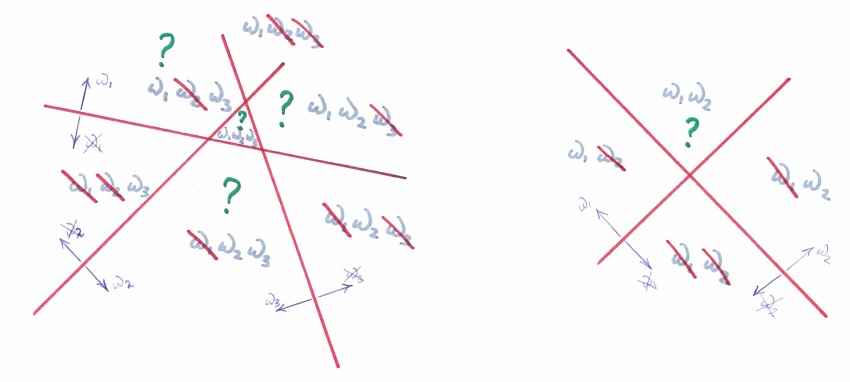 ω₁ ω₂ ω₃
?
ω₁
ω₁ ω₂ ω₃
?
ω₁ ω₂ ω₃
?
ω₁ ω₂ ω₃
ω₁
ω₁ ω₂ ω₃
?
ω₁ ω₂ ω₃
ω₁ ω₂ ω₃
ω₂
ω₂
ω₃
ω₃
ω₁ ω₂
?
ω₁ ω₂
ω₁ ω₂
ω₁
ω₁ ω₂
ω₂
ω₂